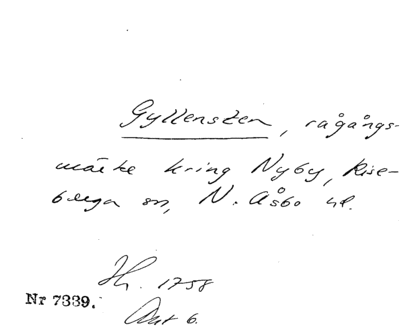 Gyllensten, rågångs-
märke kring Nyby, Rise-
berga sn, N. Åsbo hd.
Hh. 1758
Akt 6.
Nr 7339.